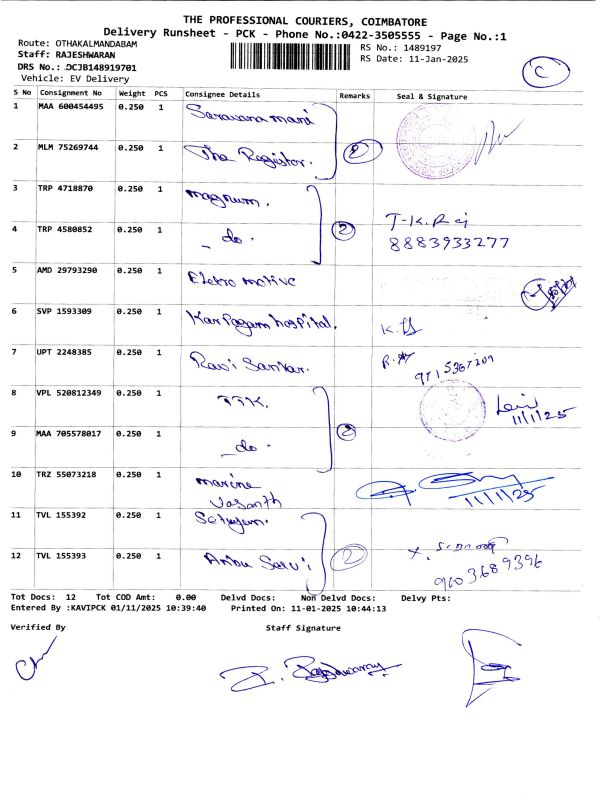 THE PROFESSIONAL COURIERS, COIMBATORE
Delivery Runsheet - PCK - Phone No.:0422-3505555 - Page No.:1
Route: OTHAKALMANDABAM
Staff: RAJESHWARAN
DRS No.: DCJB148919701
Vehicle: EV Delivery
RS No.: 1489197
RS Date: 11-Jan-2025
C
S No Consignment No Weight PCS Consignee Details Remarks Seal & Signature
1 MAA 600454495 0.250 1 Saravana mani
2 MLM 75269744 0.250 1 The Registor. 2
3 TRP 4718870 0.250 1 magnum.
4 TRP 4580852 0.250 1 - do. 2 T-K.Raj
8883933277
5 AMD 29793290 0.250 1 Elektro motive
6 SVP 1593309 0.250 1 Karpagam hospital.
7 UPT 2248385 0.250 1 Ravi Sankar.
9715367209
8 VPL 520812349 0.250 1 TTK.
11/1/25
9 MAA 705578017 0.250 1 - do. 2
10 TRZ 55073218 0.250 1 marine
Vasanth
11/1/25
11 TVL 155392 0.250 1
12 TVL 155393 0.250 1 Anbu Selvi 2
9603689396
Tot Docs: 12 Tot COD Amt: 0.00 Delvd Docs: Non Delvd Docs: Delvy Pts:
Entered By :KAVIPCK 01/11/2025 10:39:40 Printed On: 11-01-2025 10:44:13
Verified By Staff Signature